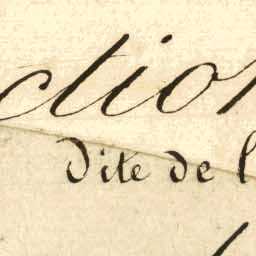 ction
Dite de l